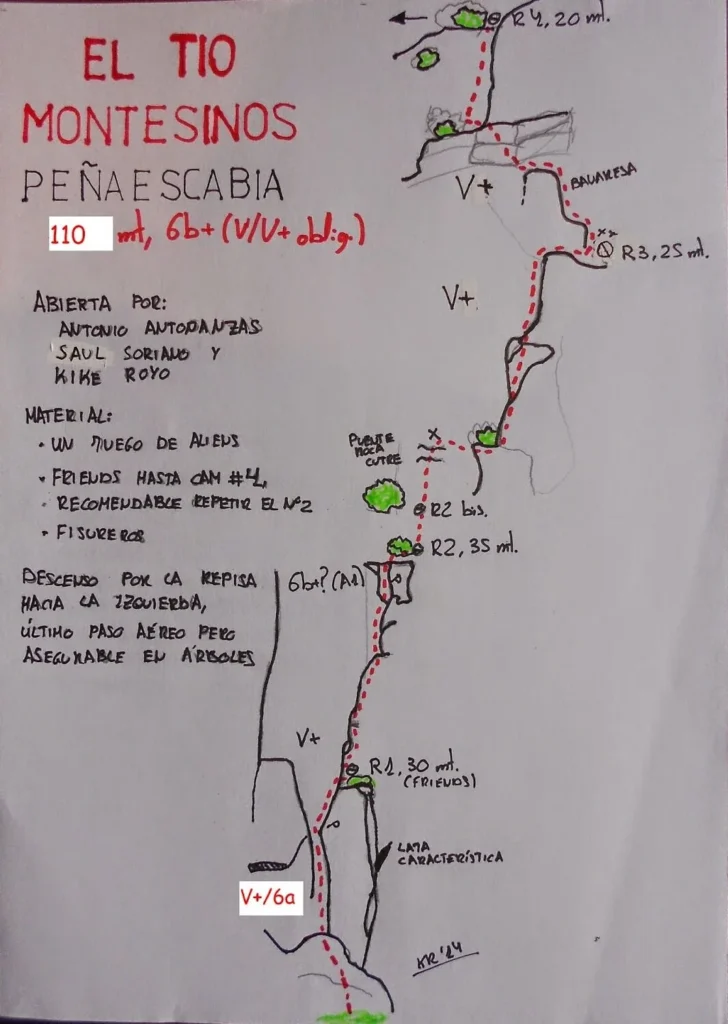 EL TIO
MONTESINOS
PEÑAESCABIA
110 mt, 6b+ (V/V+ oblig.)
ABIERTA POR:
ANTONIO AUTODANZAS
SAUL SORIANO Y
KIKE ROYO
MATERIAL:
• UN JUEGO DE ALIENS
• FRIENDS HASTA CAM #4,
• RECOMENDABLE REPETIR EL Nº2
• FISUREROS
DESCENSO POR LA REPISA
HACIA LA IZQUIERDA,
ÚLTIMO PASO AÉREO PERO
ASEGURABLE EN ÁRBOLES
R4, 20 mt.
BAVARESA
V+
R3, 25 mt.
V+
PUENTE
ROCA
CUTRE
R2 bis.
R2, 35 mt.
6b+? (A1)
V+
R1, 30 mt.
(FRIENDS)
LAJA
CARACTERÍSTICA
V+/6a
KR'24